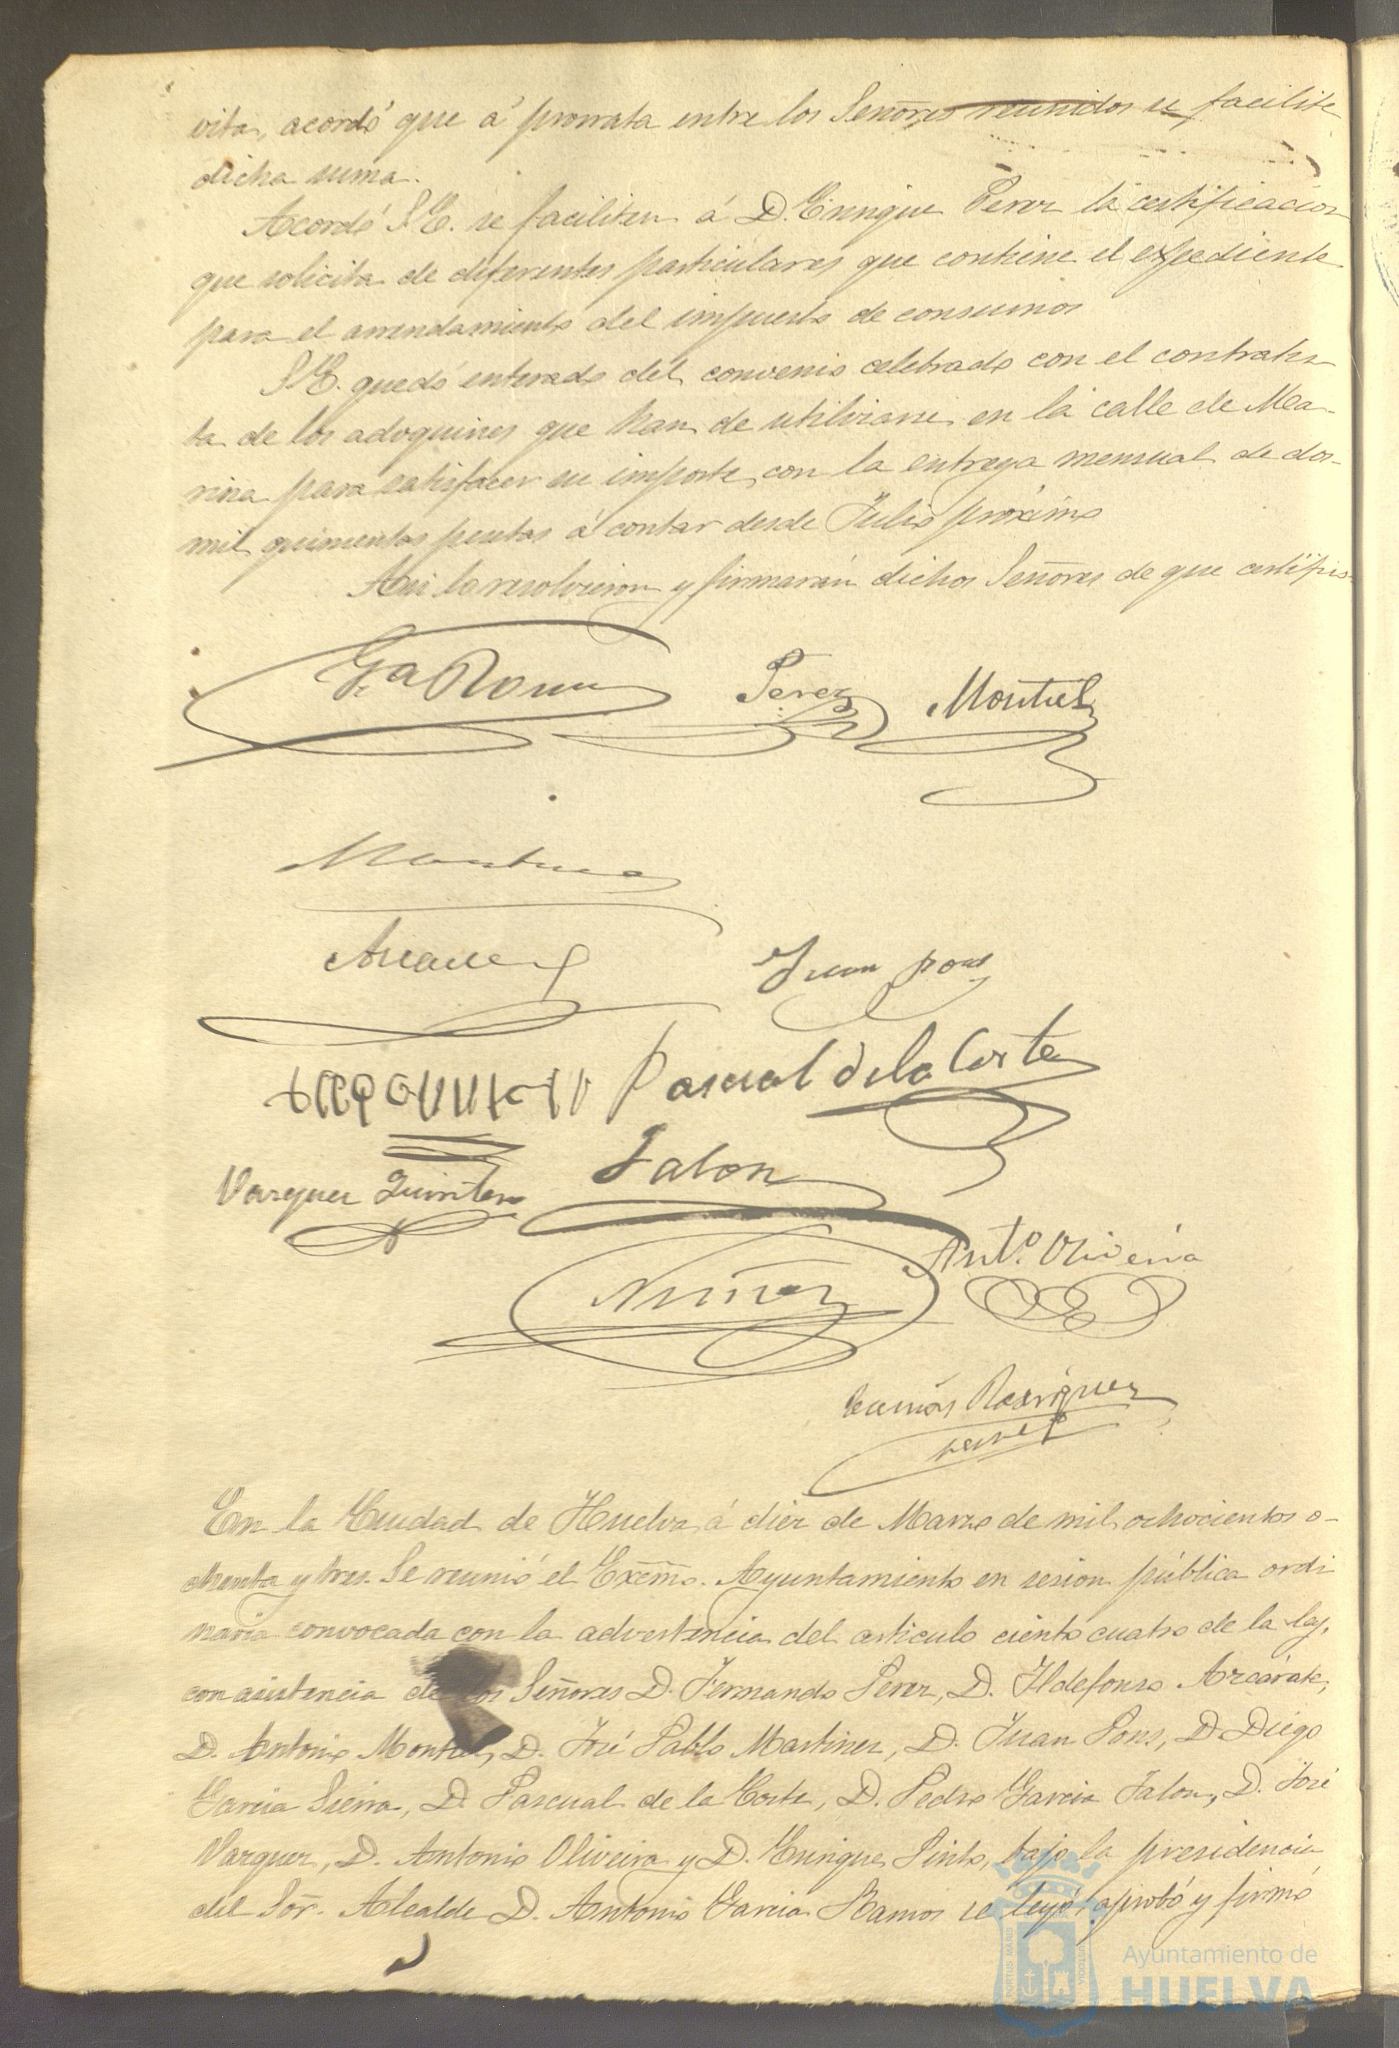 vita, acordó que á prorrata entre los Señores reunidos se facilite
dicha suma.
Acordó S.E. se faciliten á D. Enrique Perez la certificacion
que solicita de diferentes particulares que contiene el expediente
para el arrendamiento del impuesto de consumos
S.E. quedó enterado del convenio celebrado con el contratis-
ta de los adoquines que han de utilizarse en la calle de Ma-
rina para satisfacer su importe, con la entrega mensual de dos-
mil quinientas pesetas á contar desde Julio próximo
Asi lo resolvieron y firmarán dichos Señores de que certifico.
Ga Ramos Perez Montiel
Martinez
Azcarate Juan Pons
Pascual de la Corte
Vazquez Quintero Jalon
Nuñez Anto. Oliveira
Rodriguez
En la Ciudad de Huelva á diez de Marzo de mil ochocientos o-
chenta y tres. Se reunió el Excmo. Ayuntamiento en sesion pública ordi
naria convocada con la advertencia del articulo ciento cuatro de la ley,
con asistencia de los Señores D. Fernando Perez, D. Ildefonso Azcárate,
D. Antonio Montiel, D. José Pablo Martinez, D. Juan Pons, D. Diego
Garcia Sierra, D. Pascual de la Corte, D. Pedro Garcia Jalon, D. José
Vazquez, D. Antonio Oliveira y D. Enrique Pinto, bajo la presidencia
del Sor. Alcalde D. Antonio Garcia Ramos se leyó, aprobó y firmó
Ayuntamiento de
HUELVA